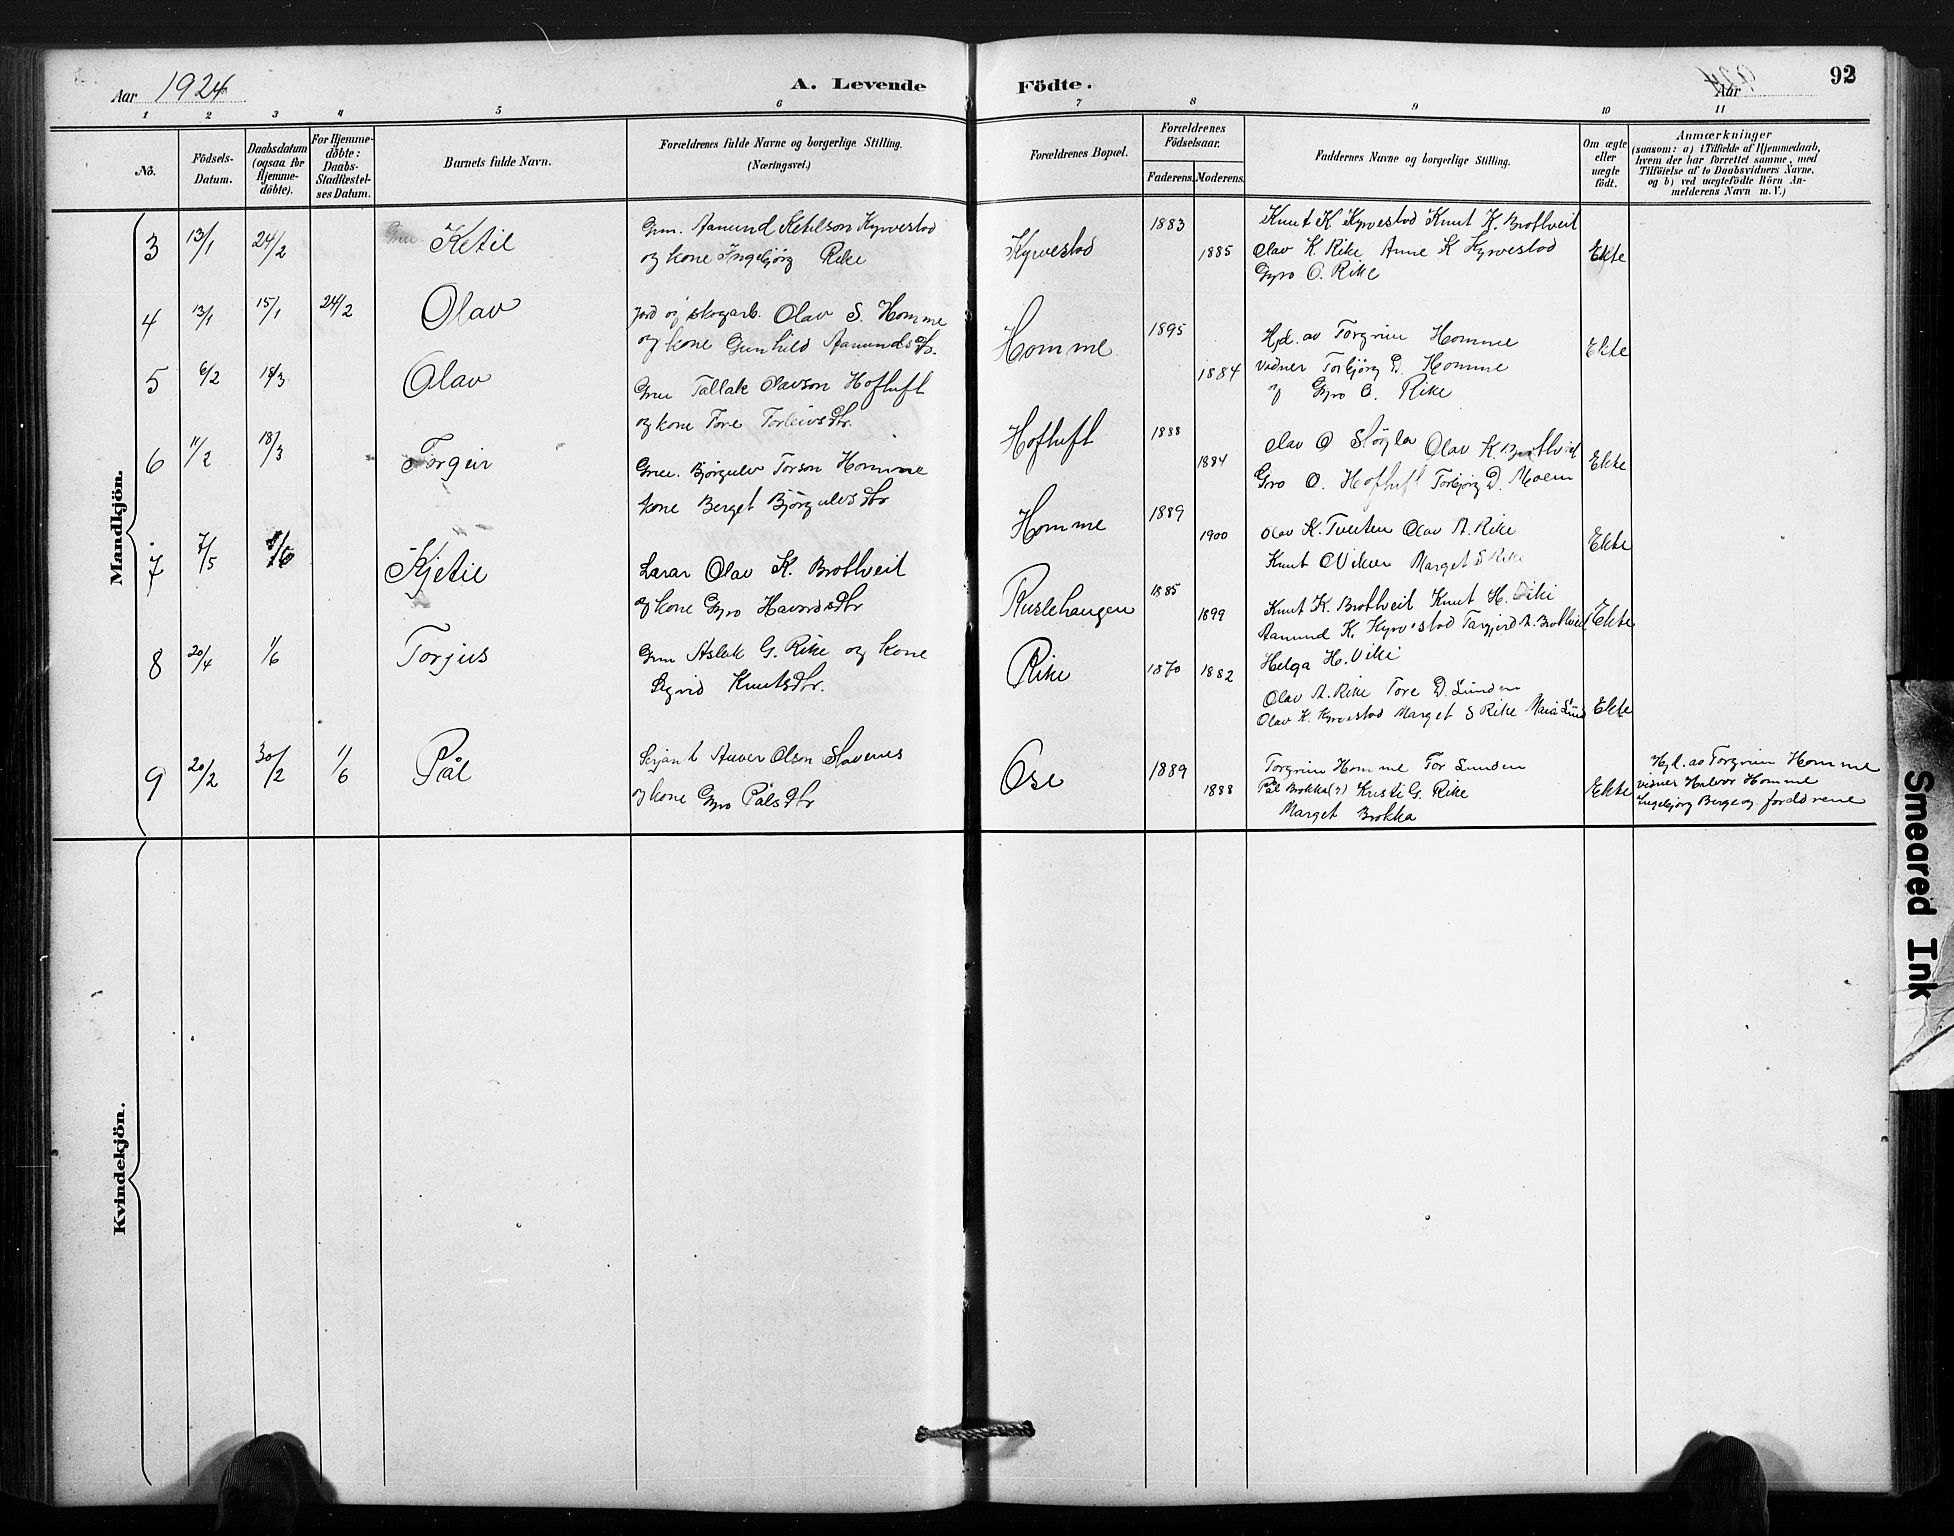 Aar 1924 A. Levende Födte. Aar 92
1 2 3 4 5 6 7 8 9 10 11
No. Födsels-Datum. Daabsdatum (ogsaa for Hjemmedöbte). For Hjemmedöbte: Daabs-Stadfæstelses Datum. Barnets fulde Navn. Forældrenes fulde Navne og borgerlige Stilling. (Næringsvei.) Forældrenes Bopæl. Forældrenes Födselsaar. Faderens. Moderens. Faddernes Navne og borgerlige Stilling. Om ægte eller uægte födt. Anmærkninger (saasom: a) i Tilfælde af Hjemmedaab, hvem der har forrettet samme, med Tilföielse af to Daabsvidners Navne, og b) ved uægtefödte Börn Anmelderens Navn m. V.)
Mandkjön.
3 13/1 24/2 Ketil Gm. Aamund Ketilson Kyrvestad Kyrvestad 1883 Knut K Kyrvestad Knut K. Brottveit
og kone Ingebjörg Rike 1885 Olav K. Rike Anne K Kyrvestad Ekte
Gyro O. Rike
4 13/1 15/1 24/2 Olav Jord og skogarb. Olav S. Homme Homme 1895 Hjd. av Torgrim Homme Ekte
og kone Gunhild Aamundsdtr. 1884 vidner Torbjörg D. Homme
og Gyro O. Rike
5 6/2 18/3 Olav Gm. Tallak Olavson Hoftuft Hoftuft 1888 Olav O
og kone Tore Torleivsdtr. 1884 Olav K. Brottveit Ekte
Gro O. Hoftuft Torbjörg D. Moen
6 11/2 18/3 Torgeir Gm. Björgulv Torson Homme Homme 1889 Olav K. Tveiten Olav A. Rike
kone Berget Björgulvsdtr 1900 Knut Marget S Rike Ekte
7 7/5 Kjetil Lærar Olav K. Brottveit 1885 Knut K. Brottveit Knut H. Viki
og kone Gyro Havardsdtr 1899 Aamund K. Kyrvestad Targjerd A. Brottveit Ekte
Helga H. Viki
8 20/4 1/6 Torjus Gm Aslak G. Rike og kone Rike 1870 1882 Olav A. Rike Tore D. Lunden
Sigrid Knutsdtr. Olav K. Kyrvestad Marget S Rike Ekte
9 20/2 30/2 1/6 Pål Serjant Olson Stavenes Ose 1889 Torgrim Homme Tor Lunden Hjd. av Torgrim Homme
og kone Gyro Pålsdtr 1888 Pål Brokka (?) Kristi G. Rike Ekte vidner Halvor Homme
Marget Brokka Ingebjörg Berge og foreldrene
Kvindekjön.
Smeared Ink